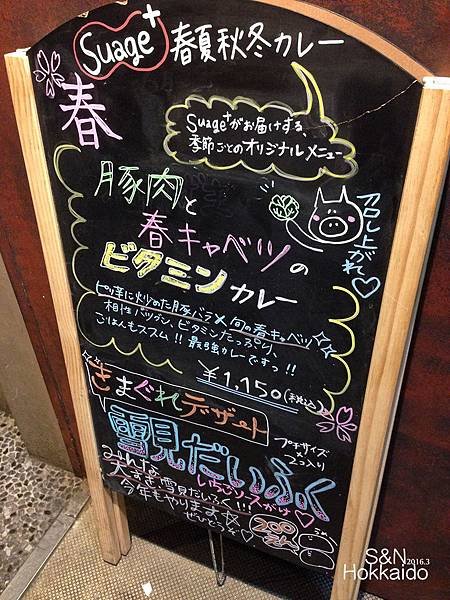 Suage+ 春夏秋冬カレー
春
Suage+がお届けする、
季節ごとのオリジナルメニュー
豚肉と
春キャベツの
ビタミンカレー
召し上がれ♡
ピリ辛に炒めた豚バラ×旬の春キャベツ
相性バツグン、ビタミンたっぷり、
ごはんもススム!! 最強カレーですっ!!
¥1,150(税込)
きまぐれデザート
雪見だいふく
プチサイズ
×
2つ入り
いちごソースがけ♡
みんな
大すき雪見だいふく!!!
今年もやります
ぜひどうぞ♡
200
えん
S&N 2016.3
Hokkaido